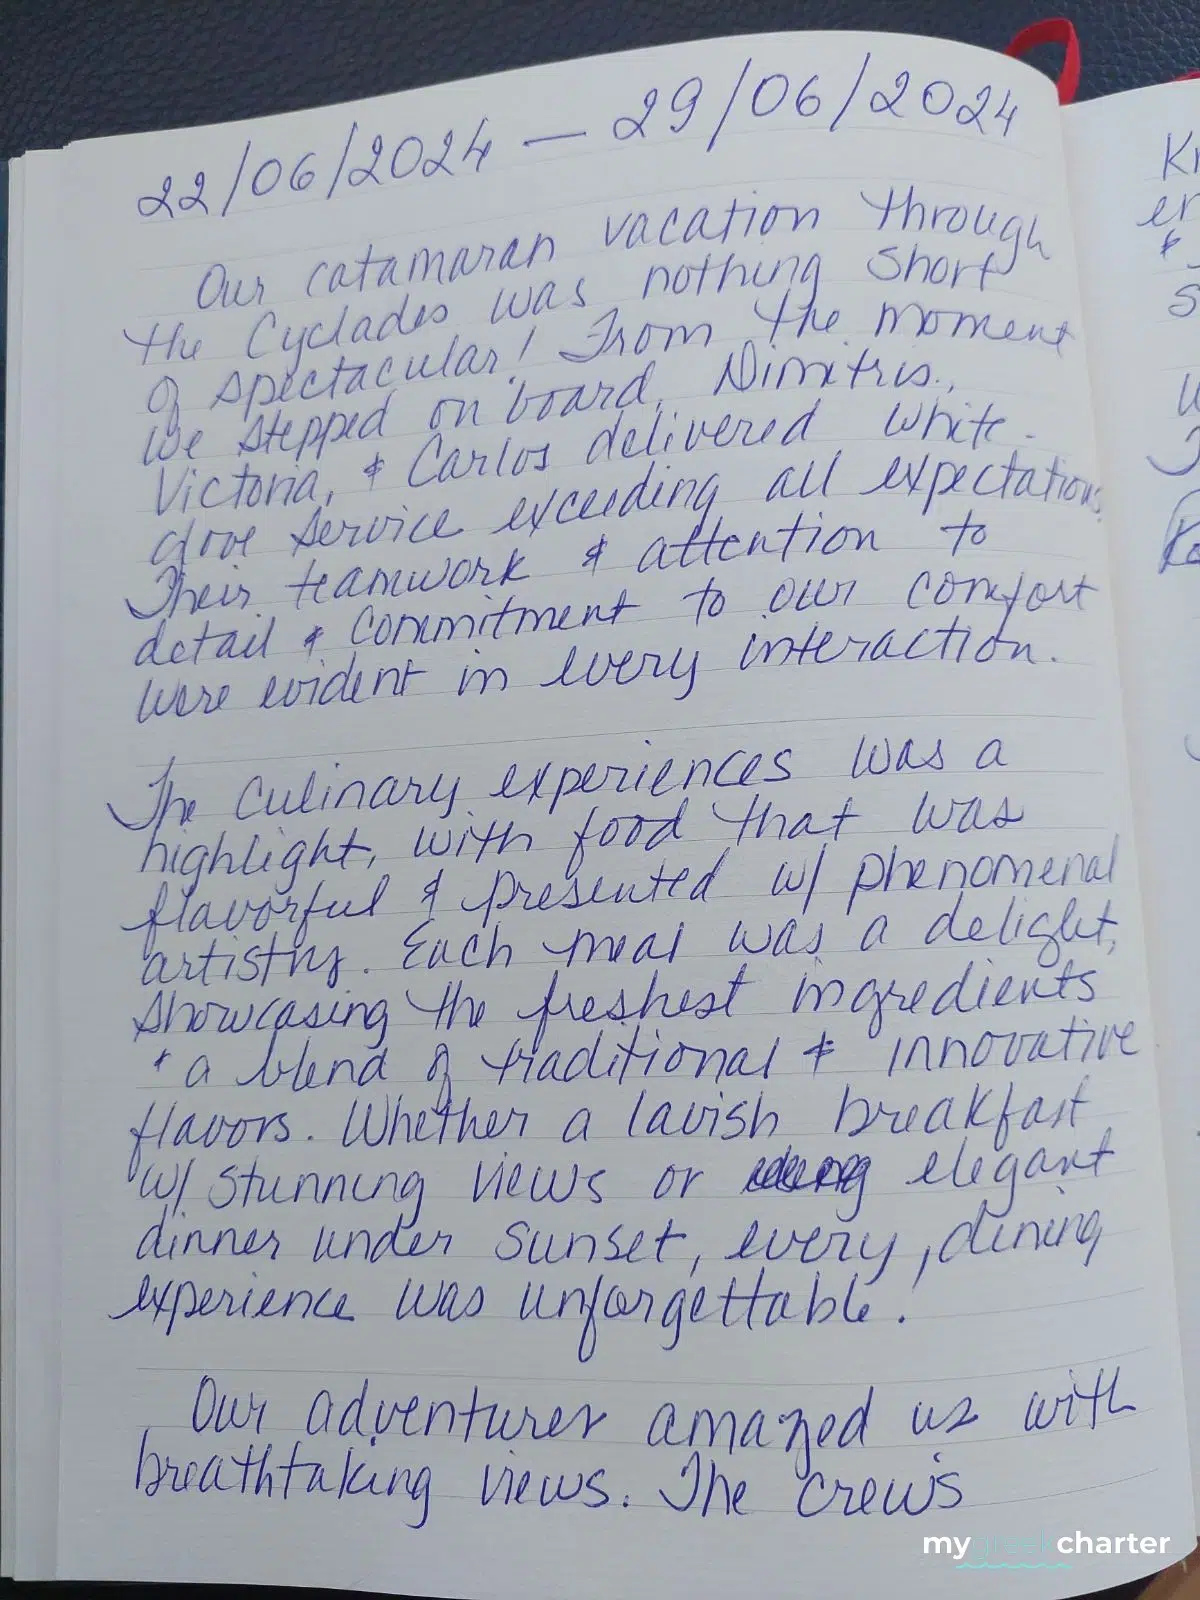 22/06/2024 — 29/06/2024
Our catamaran vacation through
the Cyclades was nothing short
of spectacular! From the moment
we stepped on board, Dimitris,
Victoria, & Carlos delivered white-
glove service exceeding all expectations.
Their teamwork & attention to
detail & commitment to our comfort
were evident in every interaction.
The culinary experiences was a
highlight, with food that was
flavorful & presented w/ phenomenal
artistry. Each meal was a delight,
showcasing the freshest ingredients
& a blend of traditional & innovative
flavors. Whether a lavish breakfast
w/ stunning views or elegant
dinner under sunset, every, dining
experience was unforgettable.
Our adventures amazed us with
breathtaking views. The crew's
mygreekcharter